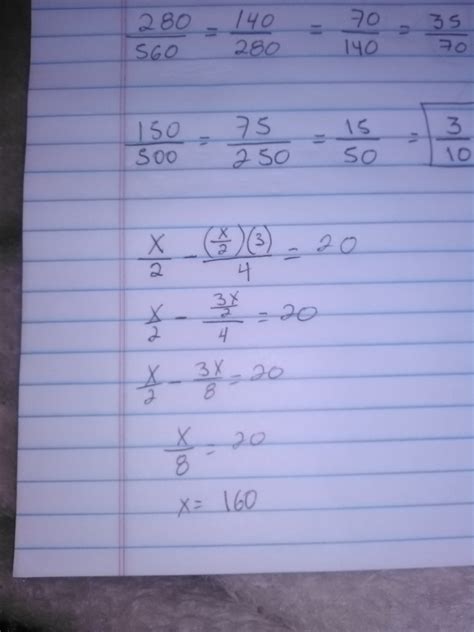 280/560 = 140/280 = 70/140 = 35/70
150/500 = 75/250 = 15/50 = 3/10
x/2 - (x/2)(3)/4 = 20
x/2 - (3x/2)/4 = 20
x/2 - 3x/8 = 20
x/8 = 20
x = 160